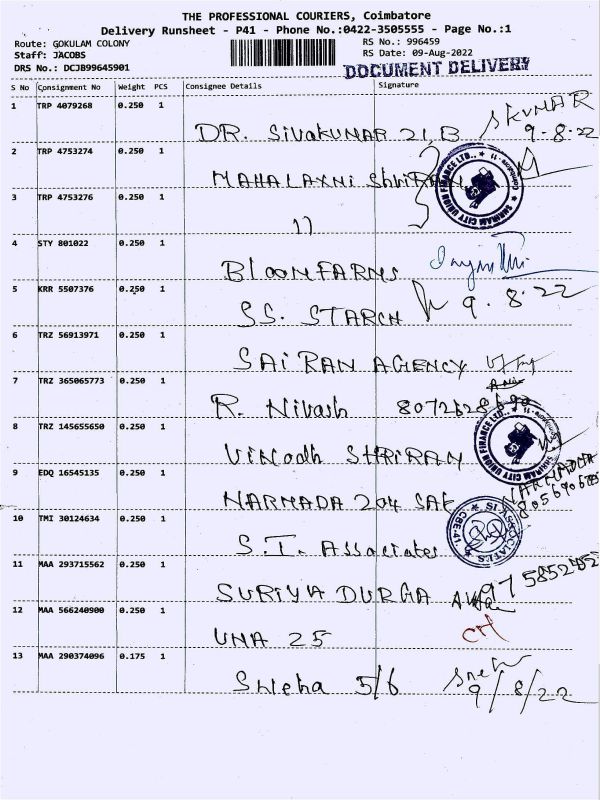 THE PROFESSIONAL COURIERS, Coimbatore
Delivery Runsheet - P41 - Phone No.:0422-3505555 - Page No.:1
Route: GOKULAM COLONY RS No.: 996459
Staff: JACOBS RS Date: 09-Aug-2022
DRS No.: DCJB99645901 DOCUMENT DELIVERY
S No Consignment No Weight PCS Consignee Details Signature
1 TRP 4079268 0.250 1 DR. Sivakumar 21,B S KUMAR
9-8-22
2 TRP 4753274 0.250 1 MAHALAXMI Shriram
SHRIRAM CITY UNION FINANCE LTD.,
3 TRP 4753276 0.250 1 11
4 STY 801022 0.250 1 BLOOMFARMS
5 KRR 5507376 0.250 1 SS. STARCH 9.8.22
6 TRZ 56913971 0.250 1 SAIRAM AGENCY
7 TRZ 365065773 0.250 1 R. Nivash
8 TRZ 145655650 0.250 1 Vinodh SHRIRAM
SHRIRAM CITY UNION FINANCE LTD.,
9 EDQ 16545135 0.250 1 NARMADA 204 SAF NARMADHA
10 TMI 30124634 0.250 1 S.I. Associates
11 MAA 293715562 0.250 1 SURIYA DURGA
12 MAA 566240900 0.250 1 UMA 25
13 MAA 290374096 0.175 1 Sneha 5/6 Sneha
9/8/22